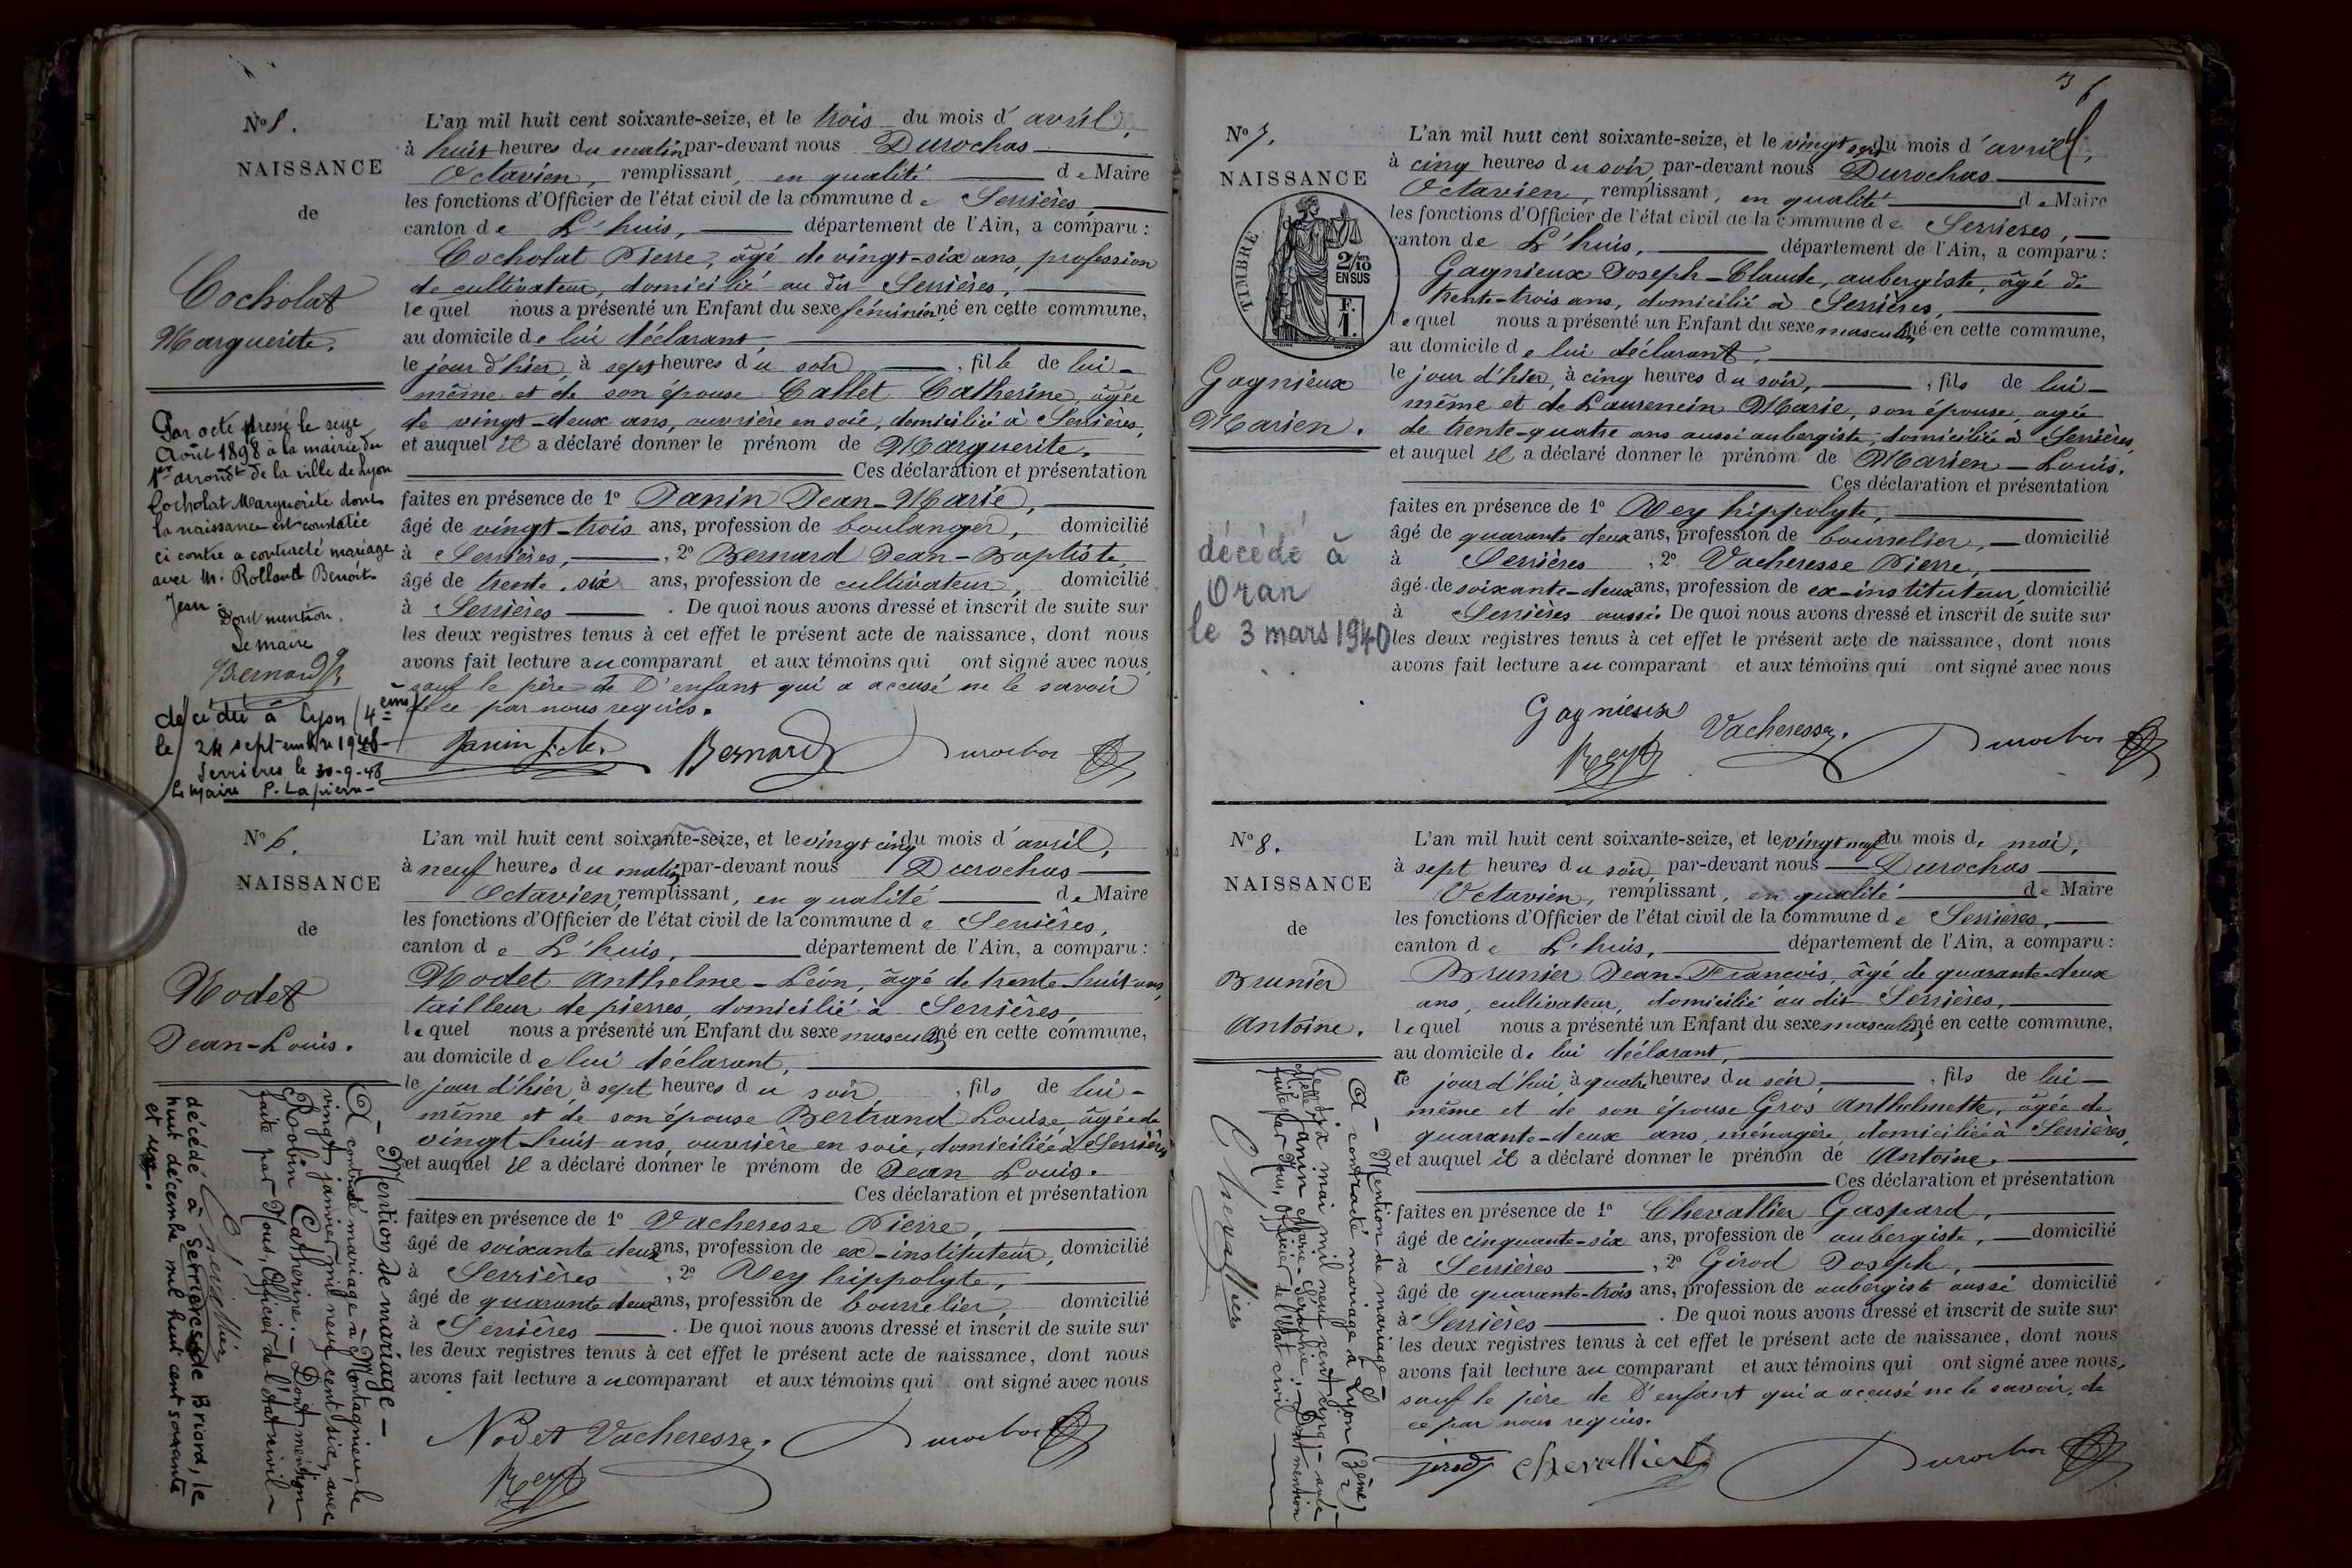 36
N° 5.
NAISSANCE
de
Cocholat
Marguerite.
Par acte dressé le seize
Août 1898 à la mairie du
1er arrondt de la ville de Lyon
Cocholat Marguerite dont
la naissance est constatée
ci contre a contracté mariage
avec Mr. Rolland Benoit-
Jean.
Dont mention.
Le maire
Bernard
décédée à Lyon (4ème)
le 24 septembre 1948
Serrières le 30-9-48
Le Maire P. Lapierre
L'an mil huit cent soixante-seize, et le trois du mois d'avril,
à huit heures du matin par-devant nous Durochas
Octavien, remplissant, en qualité de Maire
les fonctions d'Officier de l'état civil de la commune de Serrières,
canton de L'huis, département de l'Ain, a comparu :
Cocholat Pierre, âgé de vingt-six ans, profession
de cultivateur, domicilié au dit Serrières,
lequel nous a présenté un Enfant du sexe féminin né en cette commune,
au domicile de lui déclarant,
le jour d'hier, à sept heures du soir, fille de lui-
même et de son épouse Callet Catherine, âgée
de vingt-deux ans, ouvrière en soie, domiciliée à Serrières,
et auquel il a déclaré donner le prénom de Marguerite.
Ces déclaration et présentation
faites en présence de 1° Janin Jean-Marie,
âgé de vingt-trois ans, profession de boulanger, domicilié
à Serrières, 2° Bernard Jean-Baptiste,
âgé de trente-six ans, profession de cultivateur, domicilié
à Serrières. De quoi nous avons dressé et inscrit de suite sur
les deux registres tenus à cet effet le présent acte de naissance, dont nous
avons fait lecture au comparant et aux témoins qui ont signé avec nous
sauf le père de l'enfant qui a accusé ne le savoir
de ce par nous requis.
Janin Bernard Durochas
N° 6.
NAISSANCE
de
Nodet
Jean-Louis.
- Mention de mariage -
A contracté mariage à Montagnieu, le
vingt janvier mil neuf cent six, avec
Robin Catherine. - Dont mention
faite par Nous, Officier de l'état civil -
Chevallier
décédé à Serrières de Briord, le
huit décembre mil huit cent soixante
et
L'an mil huit cent soixante-seize, et le vingt cinq du mois d'avril,
à neuf heures du matin par-devant nous Durochas
Octavien, remplissant, en qualité de Maire
les fonctions d'Officier de l'état civil de la commune de Serrières,
canton de L'huis, département de l'Ain, a comparu :
Nodet Anthelme-Léon, âgé de trente-huit ans,
tailleur de pierres, domicilié à Serrières,
lequel nous a présenté un Enfant du sexe masculin né en cette commune,
au domicile de lui déclarant,
le jour d'hier, à sept heures du soir, fils de lui-
même et de son épouse Bertrand Louise, âgée de
vingt-huit ans, ouvrière en soie, domiciliée à Serrières
et auquel il a déclaré donner le prénom de Jean Louis.
Ces déclaration et présentation
faites en présence de 1° Vacheresse Pierre,
âgé de soixante deux ans, profession de ex-instituteur, domicilié
à Serrières, 2° Rey hippolyte,
âgé de quarante deux ans, profession de bourrelier, domicilié
à Serrières. De quoi nous avons dressé et inscrit de suite sur
les deux registres tenus à cet effet le présent acte de naissance, dont nous
avons fait lecture au comparant et aux témoins qui ont signé avec nous
Nodet Vacheresse. Durochas
Rey
N° 7.
NAISSANCE
TIMBRE
2/10
EN SUS
F.
1.
Gagnieux
Marien.
décédé à
Oran
le 3 mars 1940
L'an mil huit cent soixante-seize, et le vingt sept du mois d'avril,
à cinq heures du soir, par-devant nous Durochas
Octavien, remplissant, en qualité de Maire
les fonctions d'Officier de l'état civil de la commune de Serrieres,
canton de L'huis, département de l'Ain, a comparu :
Gagnieux Joseph-Claude, aubergiste, âgé de
trente-trois ans, domicilié à Serrières,
lequel nous a présenté un Enfant du sexe masculin né en cette commune,
au domicile de lui déclarant,
le jour d'hier, à cinq heures du soir, fils de lui-
même et de Laurencin Marie, son épouse, âgée
de trente-quatre ans aussi aubergiste, domiciliée à Serrières,
et auquel il a déclaré donner le prénom de Marien-Louis.
Ces déclaration et présentation
faites en présence de 1° Rey hippolyte,
âgé de quarante deux ans, profession de bourrelier, domicilié
à Serrières, 2° Vacheresse Pierre,
âgé de soixante-deux ans, profession de ex-instituteur, domicilié
à Serrières aussi. De quoi nous avons dressé et inscrit de suite sur
les deux registres tenus à cet effet le présent acte de naissance, dont nous
avons fait lecture au comparant et aux témoins qui ont signé avec nous
Gagnieux Vacheresse. Durochas
Rey
N° 8.
NAISSANCE
de
Brunier
Antoine.
- Mention de mariage -
A contracté mariage à Lyon (3ème)
le dix mai mil neuf cent cinq, - avec
Melle Janin Marie-Séraphie. - Dont mention
faite par Nous, Officier de l'état civil -
Chevallier
L'an mil huit cent soixante-seize, et le vingt neuf du mois de mai,
à sept heures du soir, par-devant nous Durochas
Octavien, remplissant, en qualité de Maire
les fonctions d'Officier de l'état civil de la commune de Serrières,
canton de L'huis, département de l'Ain, a comparu :
Brunier Jean-Francois, âgé de quarante-deux
ans, cultivateur, domicilié au dit Serrières,
lequel nous a présenté un Enfant du sexe masculin né en cette commune,
au domicile de lui déclarant,
le jour d'hui, à quatre heures du soir, fils de lui-
même et de son épouse Gros Anthelmette, âgée de
quarante-deux ans, ménagère, domiciliée à Serrières,
et auquel il a déclaré donner le prénom de Antoine.
Ces déclaration et présentation
faites en présence de 1° Chevallier Gaspard,
âgé de cinquante-six ans, profession de aubergiste, domicilié
à Serrières, 2° Girod Joseph,
âgé de quarante-trois ans, profession de aubergiste aussi domicilié
à Serrières. De quoi nous avons dressé et inscrit de suite sur
les deux registres tenus à cet effet le présent acte de naissance, dont nous
avons fait lecture au comparant et aux témoins qui ont signé avec nous,
sauf le père de l'enfant qui a accusé ne le savoir, de
ce par nous requis.
Girod Chevallier Durochas